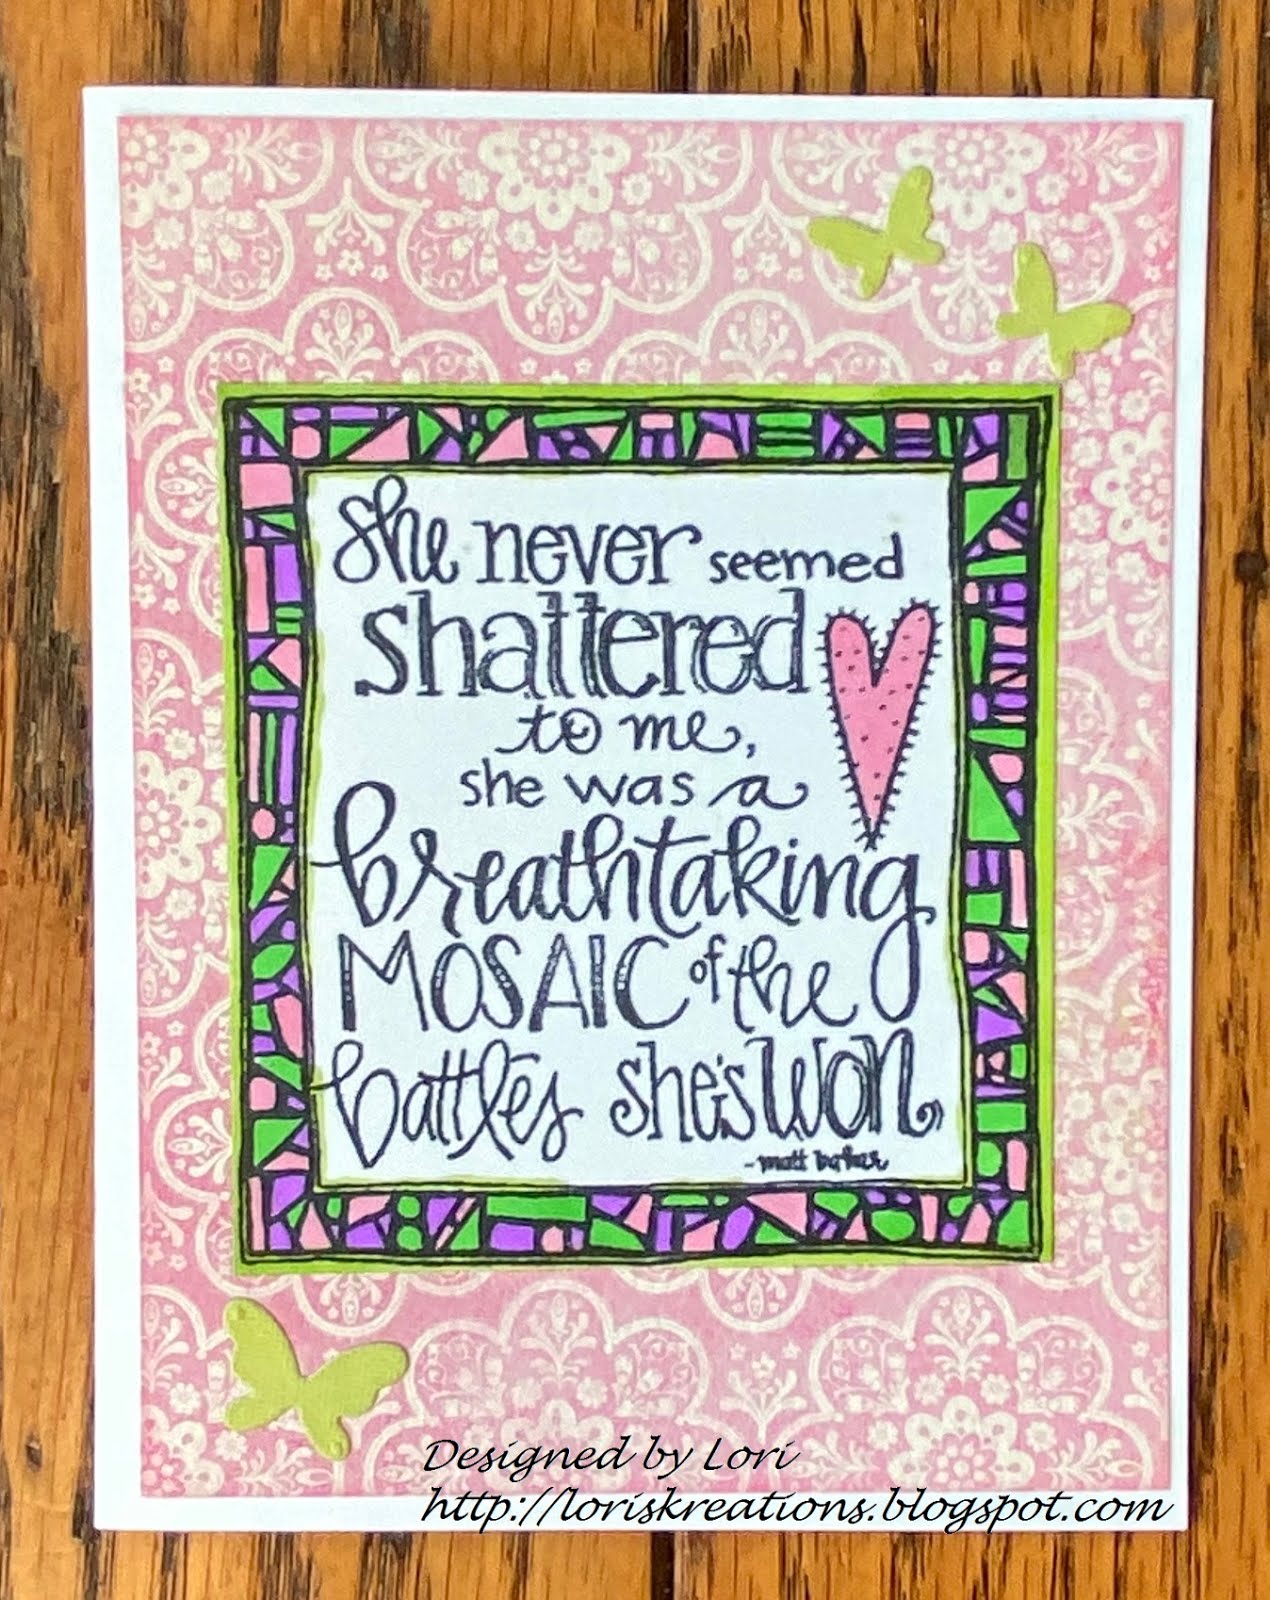 she never seemed
shattered
to me,
she was a
breathtaking
MOSAIC of the
battles she's won.
- matt baker
Designed by Lori
http://loriskreations.blogspot.com